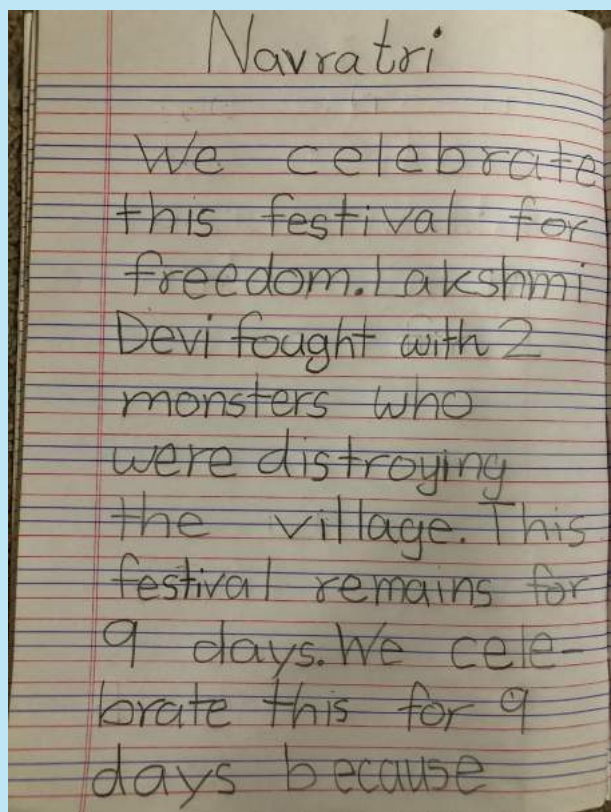 Navratri
We celebrate
this festival for
freedom. Lakshmi
Devi fought with 2
monsters who
were distroying
the village. This
festival remains for
9 days. We cele-
brate this for 9
days because